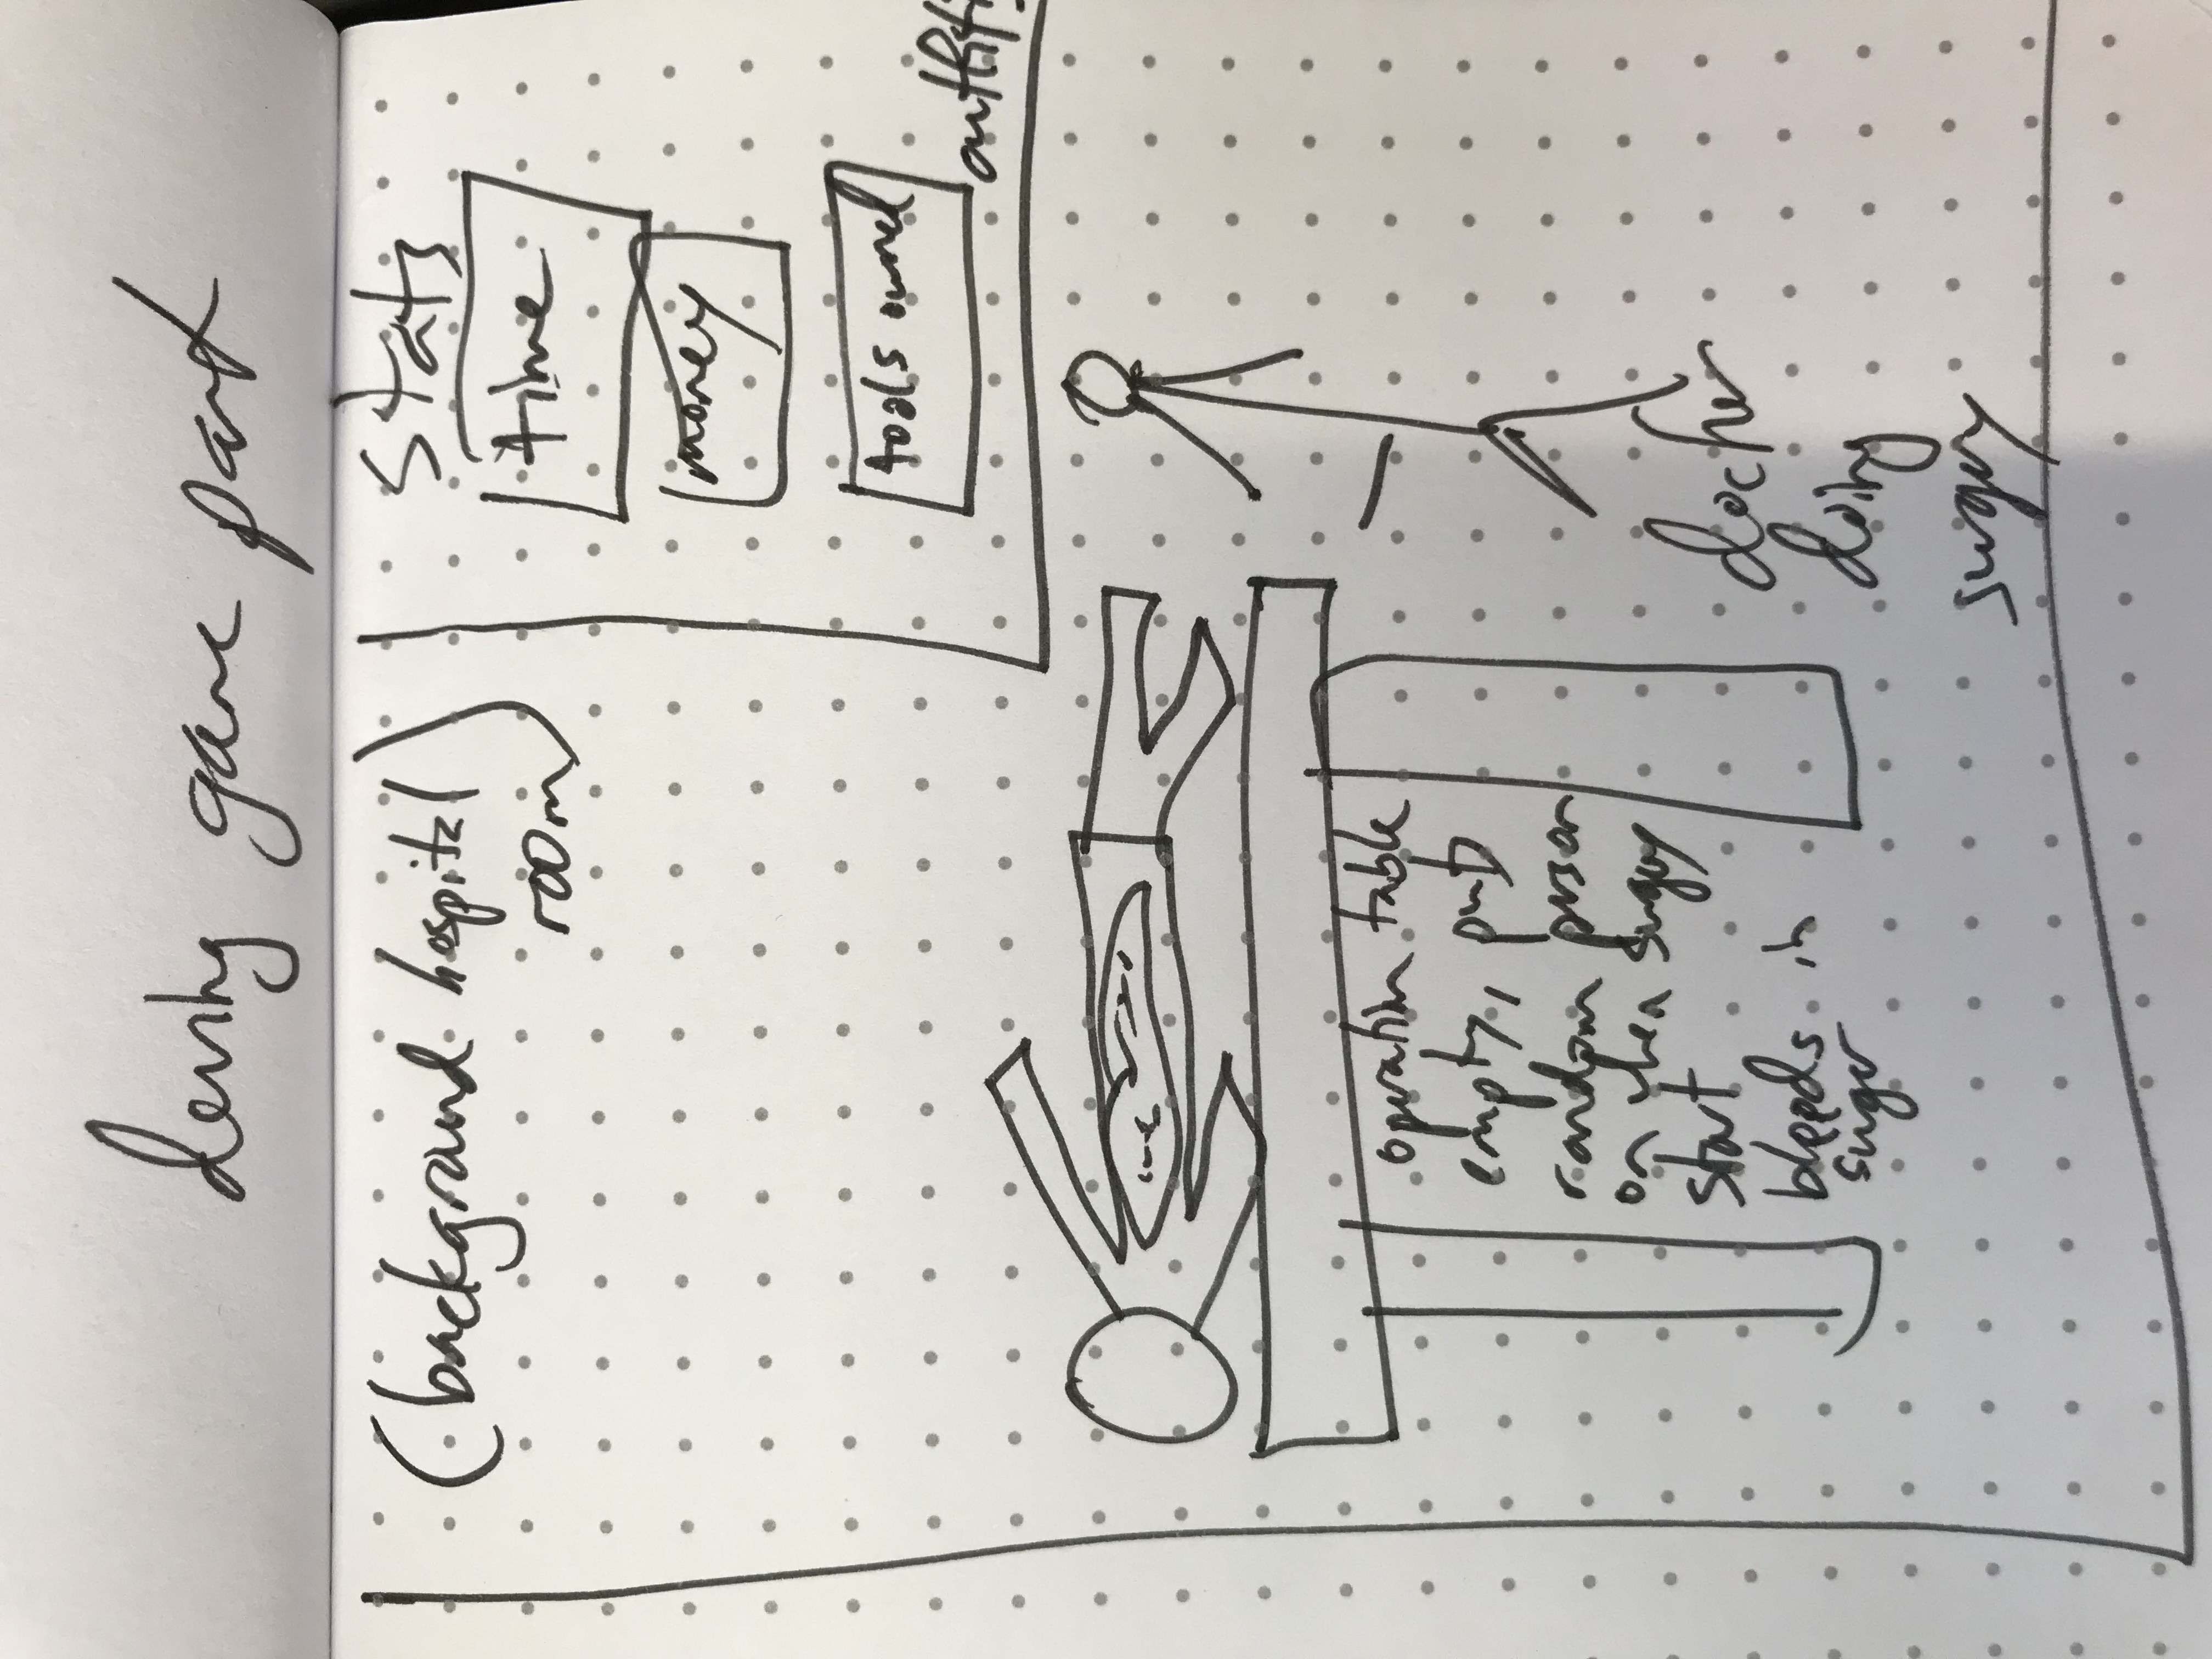 game part
(background hospital)
room
stats
time
money
tools owned
operation table
empty, put
random person
on when surgery
start
bleeds in
surger
doctor
doing
surgery